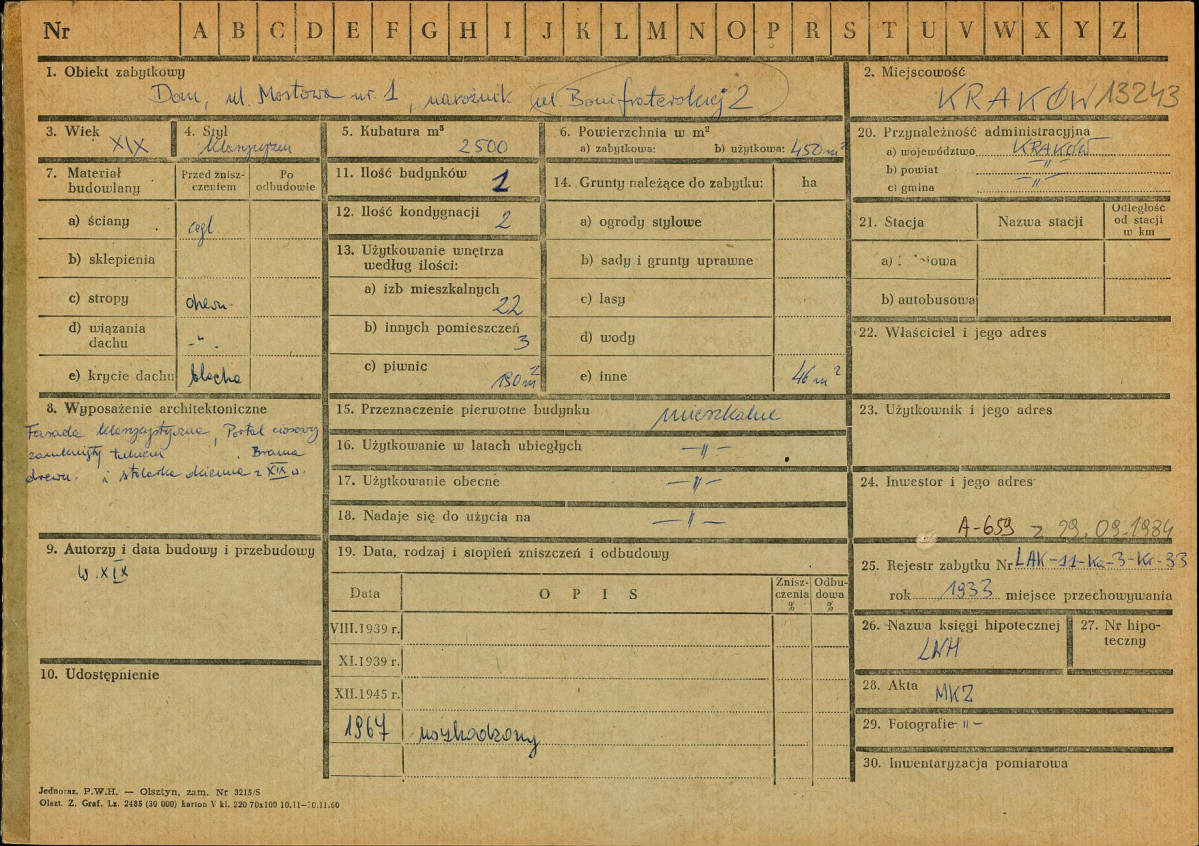 Nr A B C D E F G H I J K L M N O P R S T U V W X Y Z
1. Obiekt zabytkowy
Dom, ul. Mostowa nr. 1, narożnik ul. Bonifraterskiej 2
2. Miejscowość
KRAKÓW 13243
3. Wiek
XIX
4. Styl
klasycyzm
5. Kubatura m³
2500
6. Powierzchnia w m²
a) zabytkowa: b) użytkowa: 450 m²
20. Przynależność administracyjna
a) województwo KRAKÓW
b) powiat —"—
c) gmina —"—
7. Materiał budowlany
Przed zniszczeniem
Po odbudowie
a) ściany cegl
b) sklepienia
c) stropy drewn.
d) wiązania dachu -"-.
e) krycie dachu blacha
11. Ilość budynków 1
12. Ilość kondygnacji 2
13. Użytkowanie wnętrza według ilości:
a) izb mieszkalnych 22
b) innych pomieszczeń 3
c) piwnic 130 m²
14. Grunty należące do zabytku: ha
a) ogrody stylowe
b) sady i grunty uprawne
c) lasy
d) wody
e) inne 46 m²
21. Stacja Nazwa stacji Odległość od stacji w km
a)
b) autobusowa
22. Właściciel i jego adres
8. Wyposażenie architektoniczne
Fasada klasycystyczna, Portal ciosowy
zamknięty łukiem. Brama
drewn. i stolarka okienna z XIX w.
15. Przeznaczenie pierwotne budynku mieszkalne
16. Użytkowanie w latach ubiegłych —"—
17. Użytkowanie obecne —"—
18. Nadaje się do użycia na —"—
23. Użytkownik i jego adres
24. Inwestor i jego adres
A-659 z 29.09.1984
9. Autorzy i data budowy i przebudowy
w. XIX
10. Udostępnienie
19. Data, rodzaj i stopień zniszczeń i odbudowy
Data OPIS Zniszczenia % Odbudowa %
VIII.1939 r.
XI.1939 r.
XII.1945 r.
1967 uszkodzony
25. Rejestr zabytku Nr LAK-11-Ka-3-Kr-33
rok 1933 miejsce przechowywania
26. Nazwa księgi hipotecznej
LWH
27. Nr hipoteczny
28. Akta MKZ
29. Fotografie -"-
30. Inwentaryzacja pomiarowa
Jednoraz. P.W.H. — Olsztyn, zam. Nr 3215/S
Olszt. Z. Graf. Lz. 2485 (30 000) karton V kl. 220 70x100 10.11—10.11.60